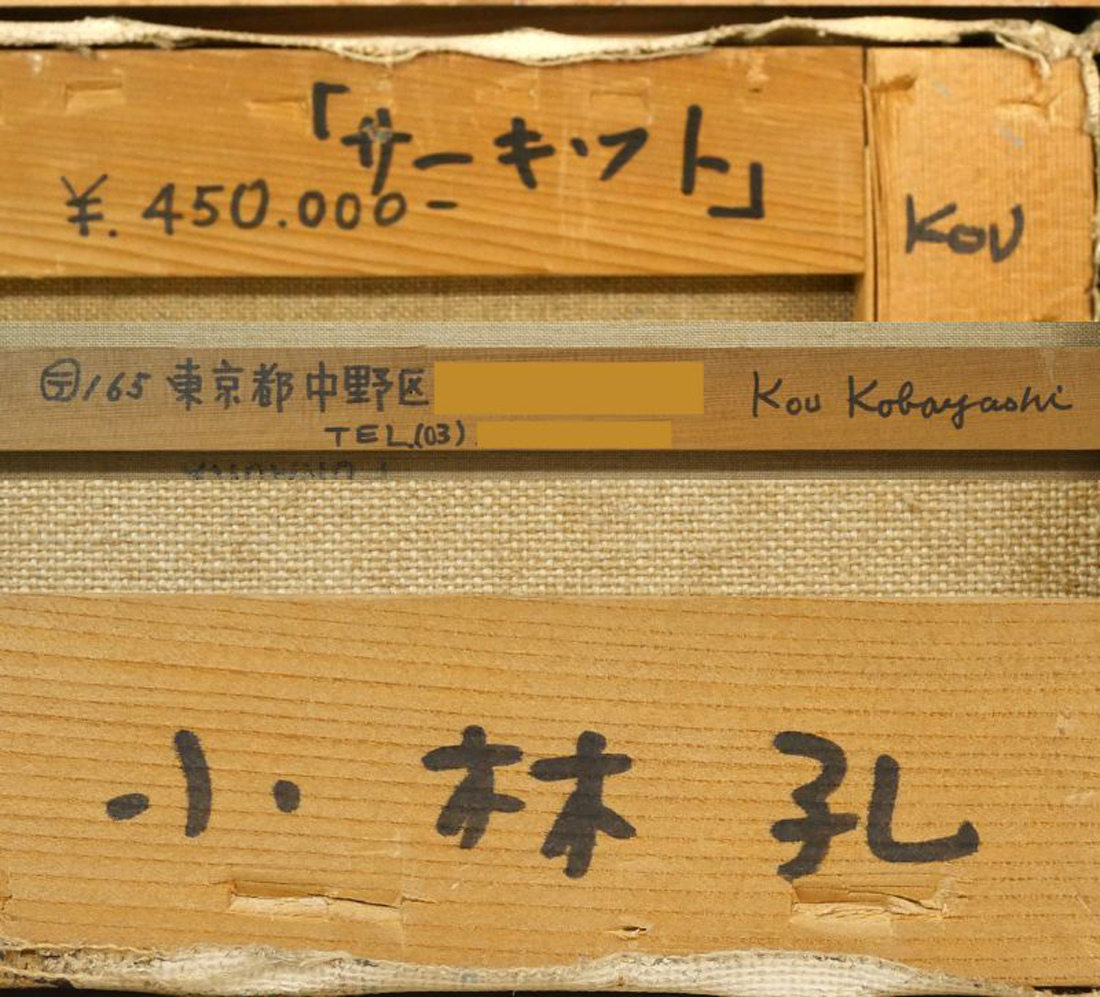 「サーキット」
¥.450.000-
KOU
〒165 東京都中野区
Kou Kobayashi
TEL.(03)
小林孔